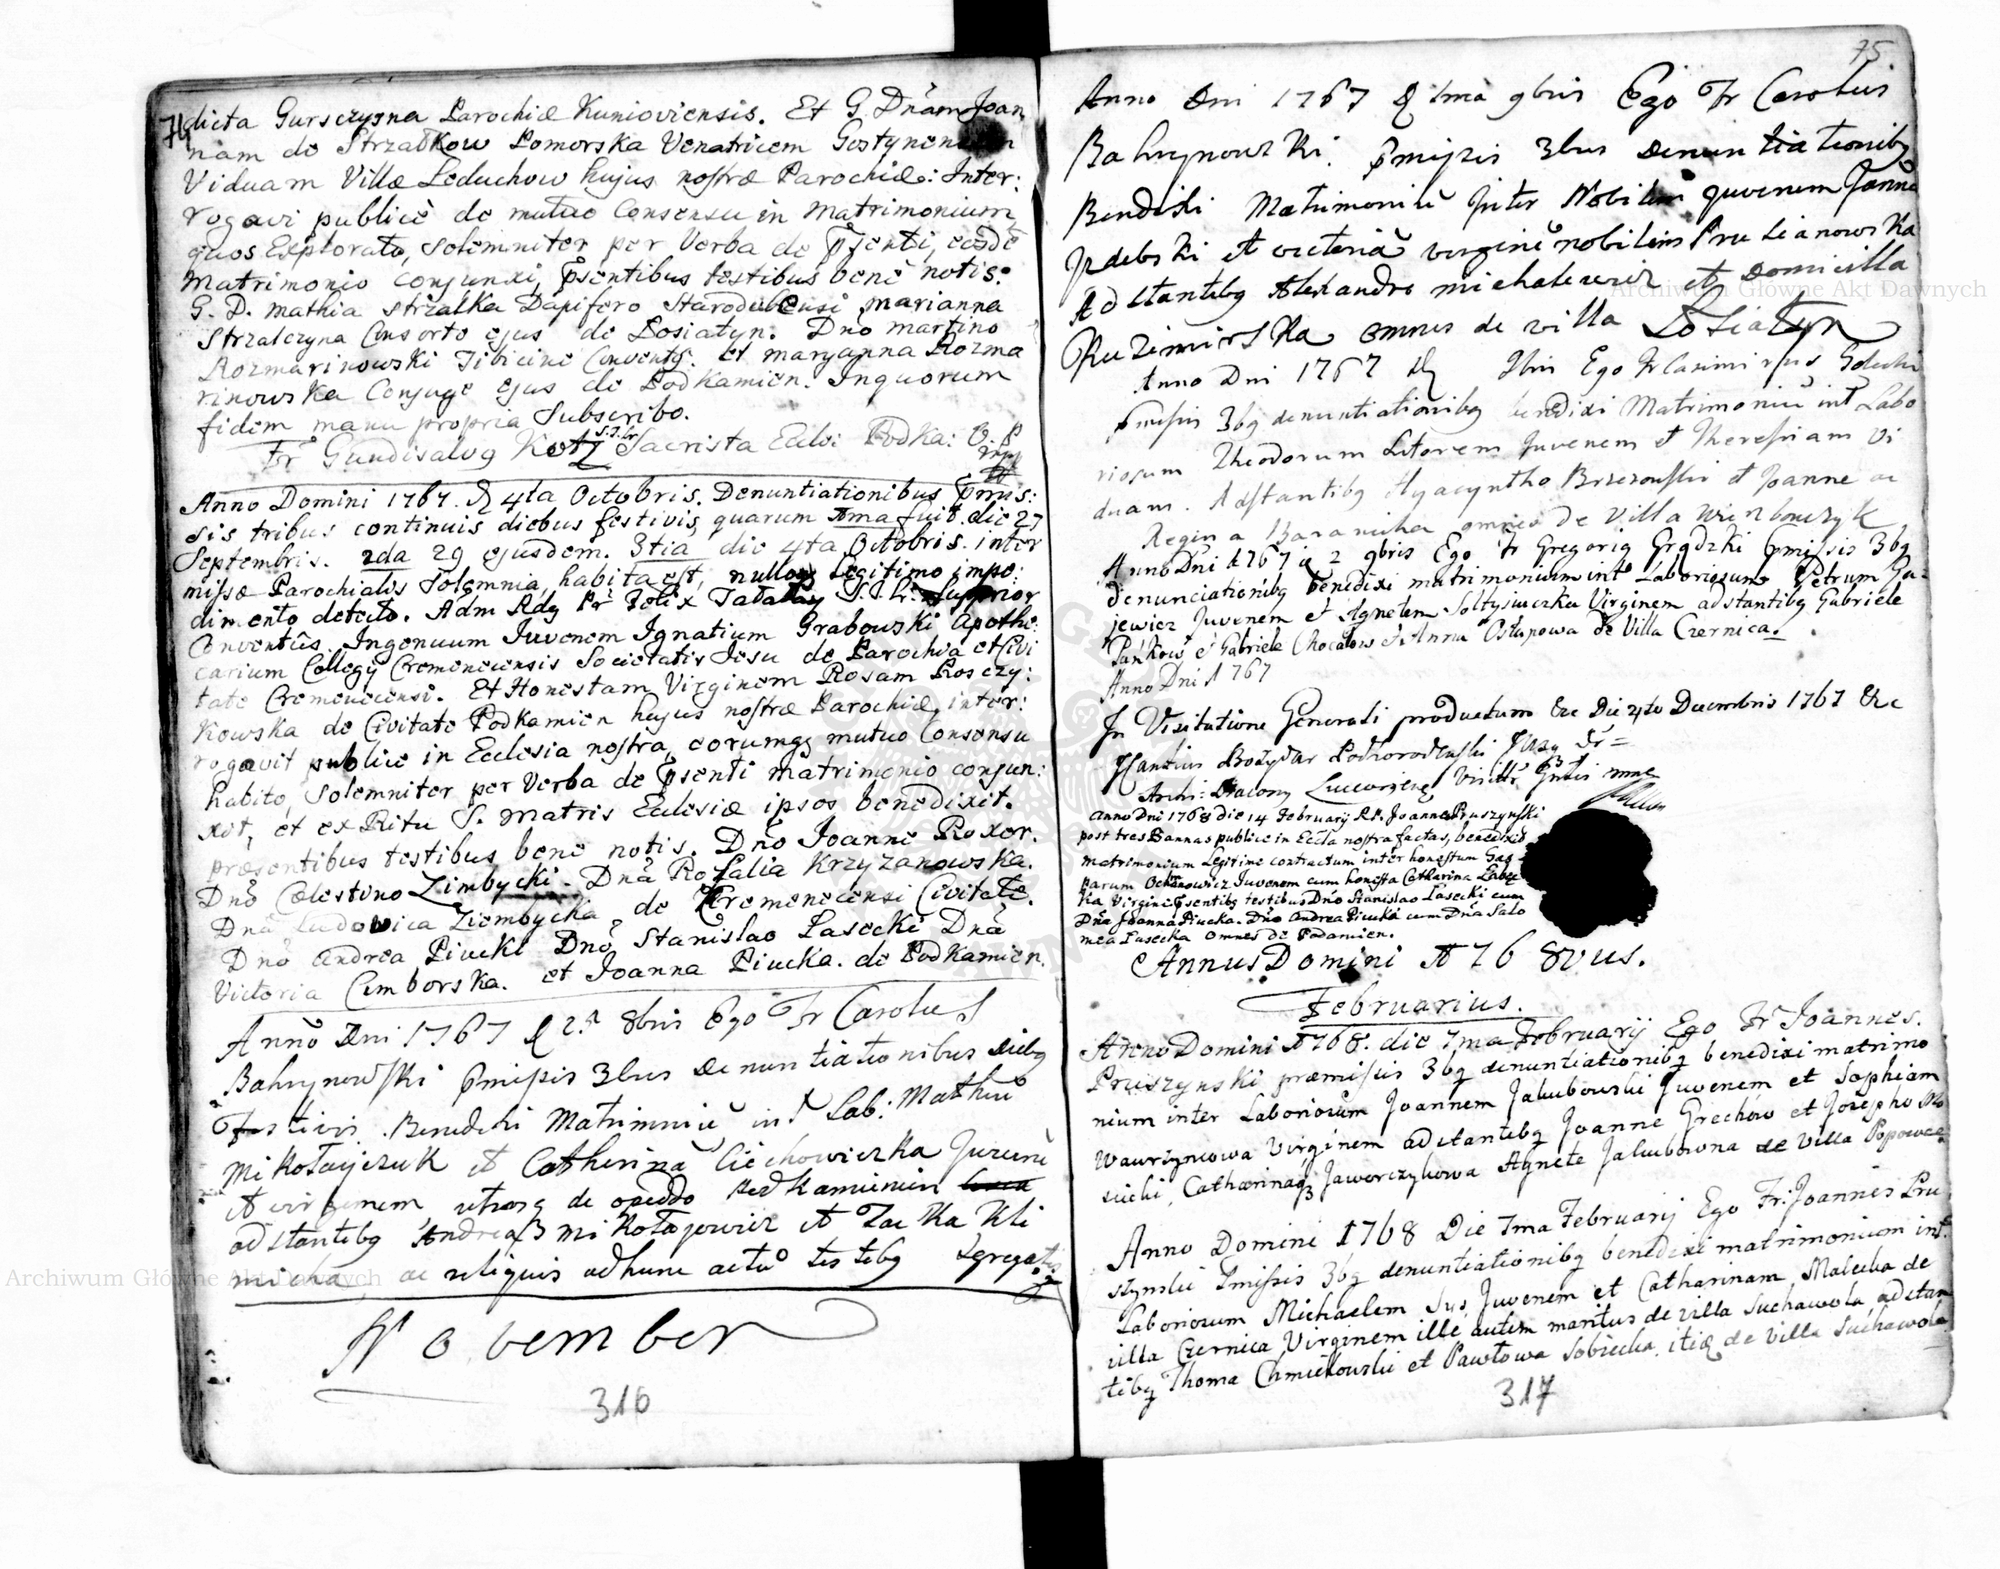 74
dicta Gurszyzna Parochiæ Kunioviensis. Et G. Dnam Joan
nam de Strzałkow Pomorska Venatricem Gostynen
Viduam Villæ Leduchow hujus nostræ Parochiæ: Inter:
rogavi publicè de mutuo Consensu in Matrimonium
quos Explorato, Solemniter per Verba de Psenti, eosdē
Matrimonio conjunxi, Psentibus testibus benè notis.
G. D. Mathia Strzałka Dapifero Starodubensi Marianna
Strzalczyna Consorte ejus de Losiatyn. Dño Martino
Rozmarinowski Tibicine Convents. et Maryanna Rozma
rinowska Conjuge ejus de Podkamien. In quorum
fidem manu propria Subscribo.
Fr Gundisalvg Kotz S.T.Lr Sacrista Eclæ Podka: O.P
mpp
Anno Domini 1767. D 4ta Octobris. Denuntiationibus Pmis:
sis tribus continuis diebus festivis, quarum 1ma fuit die 27
Septembris. 2da 29 ejusdem. 3tia die 4ta Octobris. inter
missæ Parochialis Solemnia, habita est, nulloq Legitimo impe:
dimento detecto. Adm Rdg Pr Felix Tadatay S.T.Lr. Superior
Conventûs. Ingenuum Juvenem Ignatium Grabowski Apothe:
carium Collegÿ Cremenecensis Societatis Jesu de Parochia et Civi
tate Cremenecensi. Et Honestam Virginem Rosam Roszy:
kowska de Civitate Podkamien hujus nostræ Parochiæ, inter:
rogavit publice in Ecclesia nostra, eorumqz mutuo Consensu
habito, Solemniter per Verba de Psenti matrimonio conjun:
xit, et ex Ritu S. Matris Eclesiæ ipsos benedixit.
præsentibus testibus benè notis. Dño Joanne Roxer.
Dño Cælestino Zimbycki. Dnâ Rozalia Krzyzanowska.
Dnâ Ludowica Ziembycka de Cremenecensi Civitate.
Dño Andrea Piucki Dño Stanislao Lasecki Dnâ
Victoria Cimborska. et Joanna Piucka. de Podkamien.
Anno Dni 1767 D 2ª 8bris Ego Fr Carolus
Bahrynowski Pmissis 3bus Denuntiationibus Diebg
Festivis. Benedixi Matrimoniũ int Lab: Mathiũ
Mikołayczuk et Catherinã Ciechowiczka Juvenẽ
et virginem utrosq de opeddo Podkamienin
adstantibg Andrea Mikołajewicz et Zacka Kli
micha, ac reliquis adhunc actũ testibg Egregatis
November
316
75
Anno Dni 1767 D 1ma 9bris Ego Fr Carolus
Bahrynowski. Pmissis 3bus Denuntiationibg
Bendixi Matrimoniũ Inter Nobilem Juvenem Joanne
Jzdebski et victoriã virginẽ nobilem Prusianowska
Adstantibg Alexandro Michalewicz et Domicilla
Kuzimirska omnes de villa Losiatyn
Anno Dni 1767 D 9bris Ego Fr Casimirus Golichi
Pmissis 3bg denuntiationibg benedixi Matrimoniũ int Labo
riosum Theodorum Litorem Juvenem et Theressiam Vi
duam. Adstantibg Hyacyntho Brzezowski et Joanne ac
Regina Baranicha omnes De Villa Wierzbowczyk
Anno Dni 1767 D 2 9bris Ego Fr Gregorig Grądzki Pmissis 3bg
denunciationibg benedixi matrimonium intr Laboriosum Petrum Ga-
jewicz Juvenem et Agnetem Sołtysiuczka Virginem adstantibg Gabriele
Pańkow et Gabriele Chocałow et Anna Ostapowa de Villa Czernica.
Anno Dni 1767
In Visitatione Generali productum Ere Die 4to Decembris 1767 Ere
Archi: Diacong Luceoriens Visittr Gnlis mme
Anno Dni 1768 Die 14 February R.P. Joannes Pruszynski
post tres Bannas publice in Eccla nostra factas, benedixit
matrimonium Legitime contractum inter honestum Gas
parum Ochanowicz Juvenem cum honesta Catharina Labęc
ka Virgine Psentibg testibus Dño Stanislao Lasecki cum
Dña Joanna Piucka. Dño Andrea Piucki cum Dña Salo
mea Lasecka omnes de Podamien.
Annus Domini 1768vus.
Februarius.
Anno Domini 1768. die 7ma Februarij Ego Fr Joannes.
Pruszynski præmissis 3bg denuntiationibg benedixi matrimo
nium inter Laboriosum Joannem Jakubowski Juvenem et Sophiam
Wawrzyncowa Virginem adstantibg Joanne Grechow et Josepho Mo
sücki, Catharinaq Jaworczykowa Agnete Jakubowna de Villa Popowce
Anno Domini 1768 Die 7ma Februarij Ego Fr: Joannes Pru
szynski Pmissis 3bg denuntiationibg benedixi matrimonium intr
Laboriosum Michaelem Sus Juvenem et Catharinam Malecka de
villa Czernica Virginem ille autem maritus de villa Suchawola, adstan
tibg Thoma Chmielowski et Pawłowa Sobiecka, itiq de villa Suchawola
317
Archiwum Główne Akt Dawnych
Archiwum Główne Akt Dawnych